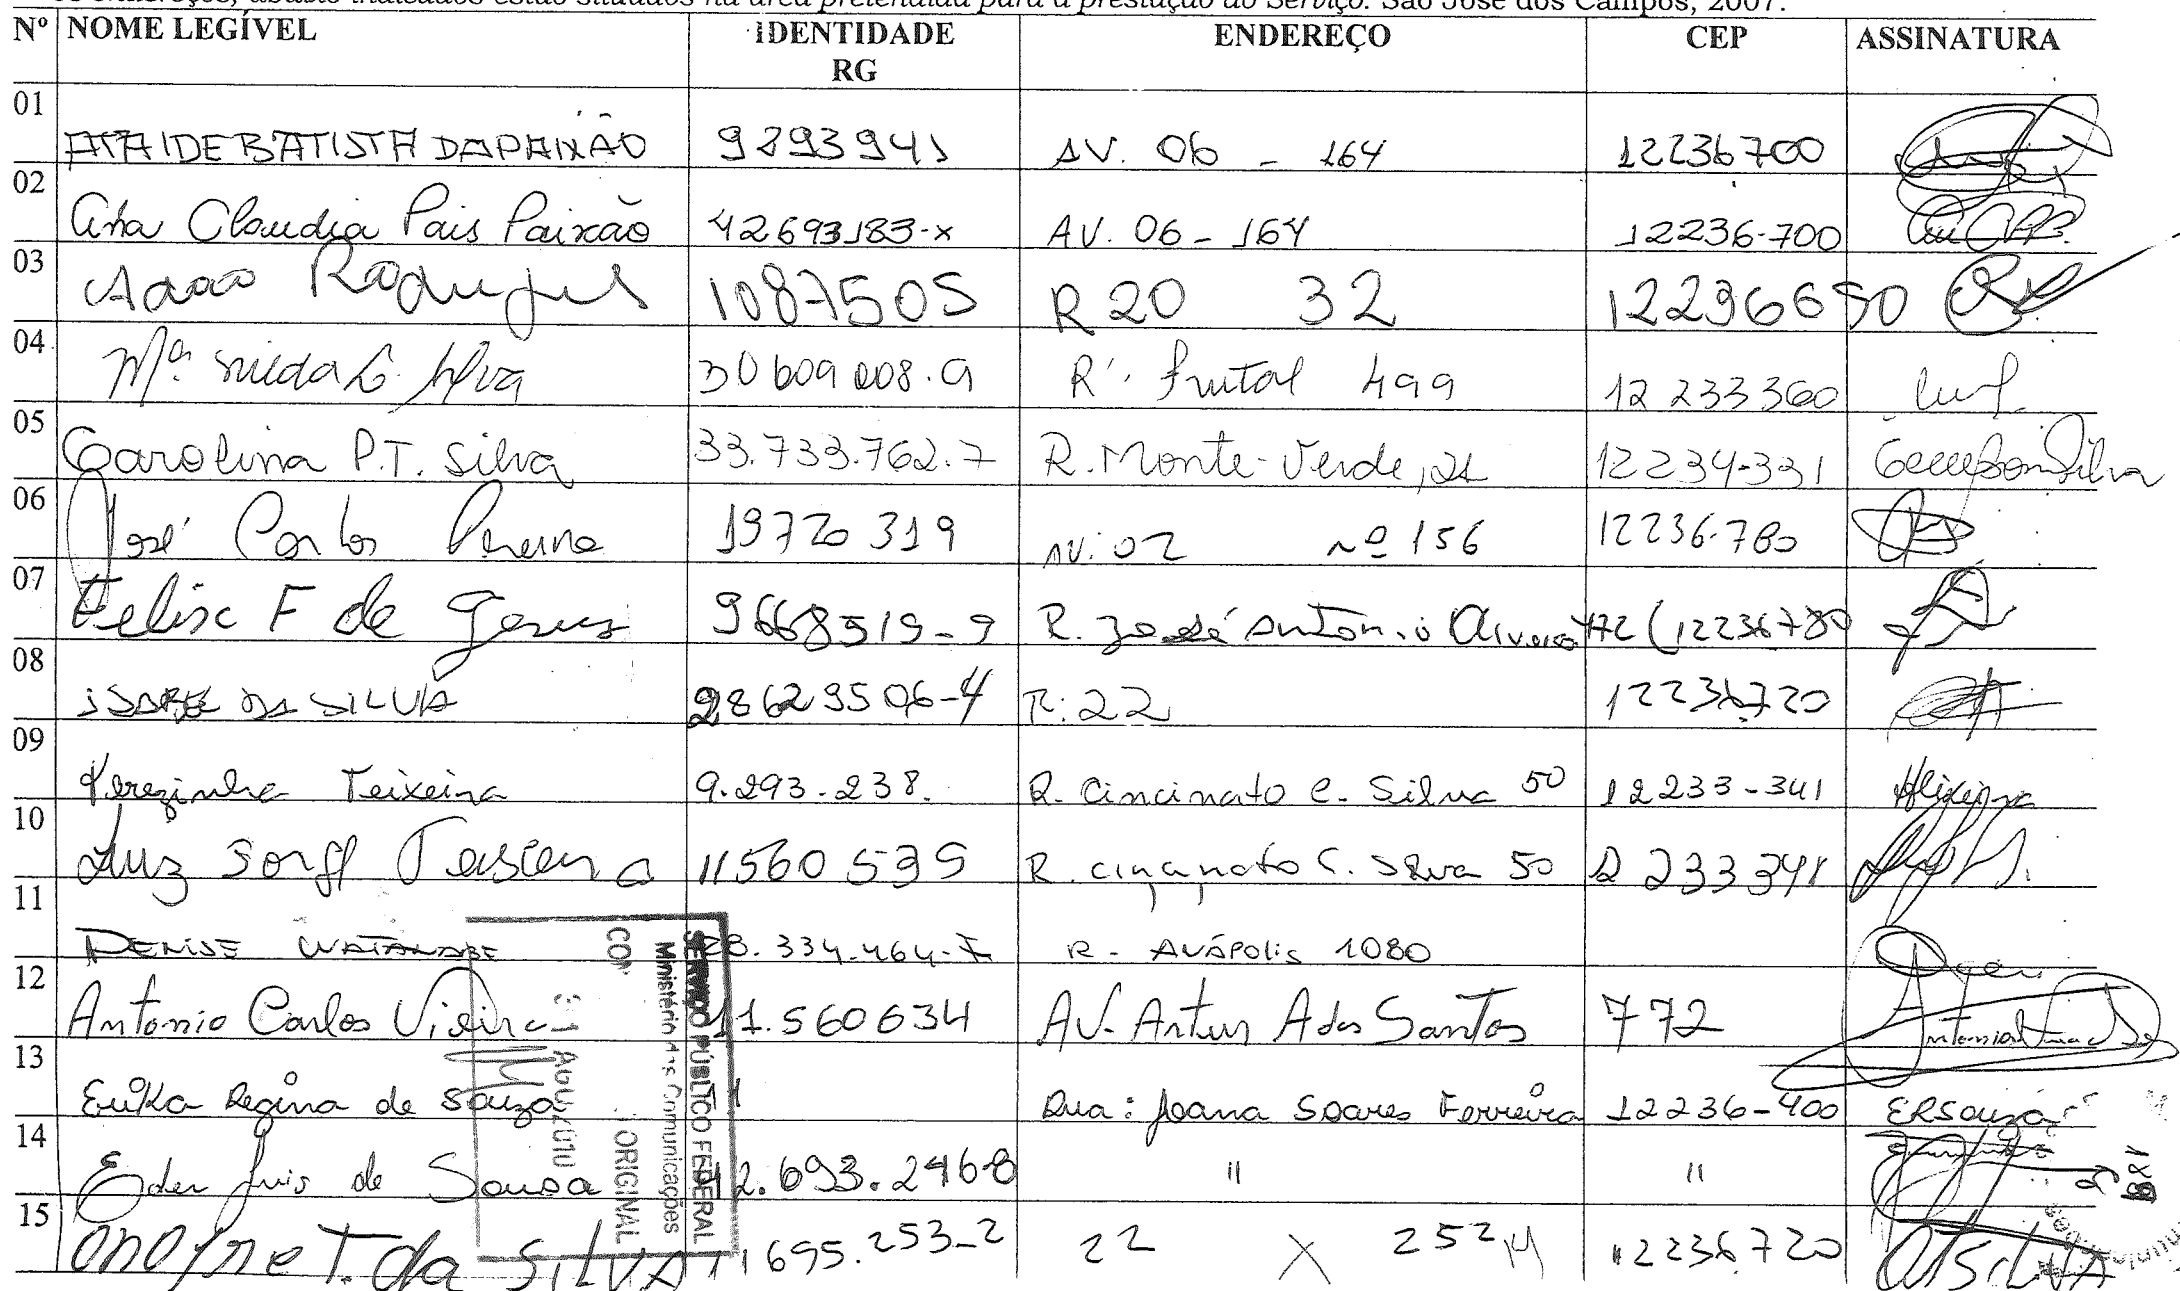 os endereços, abaixo indicados estão situados na área pretendida para a prestação do Serviço. São José dos Campos, 2007.
Nº NOME LEGÍVEL IDENTIDADE RG ENDEREÇO CEP ASSINATURA
01 ATAIDE BATISTA DA PAIXÃO 9293941 AV. 06 - 164 12236700
02 Ana Claudia Pais Paixão 42693183-x AV. 06 - 164 12236-700
03 Adão Rodrigues 1087505 R 20 32 12236650
04 Mª nieda G. Silva 30609008.9 R: frutal 499 12 233 360
05 Carolina P.T. Silva 33.733.762.7 R. Monte-Verde, 21 12234-331
06 José Carlos Pereira 19720319 AV: 02 nº 156 12236-780
07 Felix F de Jesus 9668519-9 R. José Antonio Oliveira 472 (12236780
08 ISABE DA SILVA 28629506-4 R: 22 12236720
09 Terezinha Teixeira 9.293.238. R. Cincinato C. Silva 50 12233-341 Hteixeira
10 Luz 11560539 R. cincinato C. Silva 50 12 233 341
11 DENISE WATANABE 28.334.464-7 R - AVÁPOLIS 1080
12 Antonio Carlos Vieira 11.560634 AV- Artur A dos Santos 772
13 Erika Regina de Souza 11 Rua: Joana Soares Ferreira 12236-400 ERSouza
14 Eder Luis de Sousa 42.693.246-8 " "
15 onofre T. da SILVA 11695.253-2 22 X 252 M 12236720 OTSILVA
SERVIÇO PÚBLICO FEDERAL
Ministério das Comunicações
ORIGINAL
AGO 2010